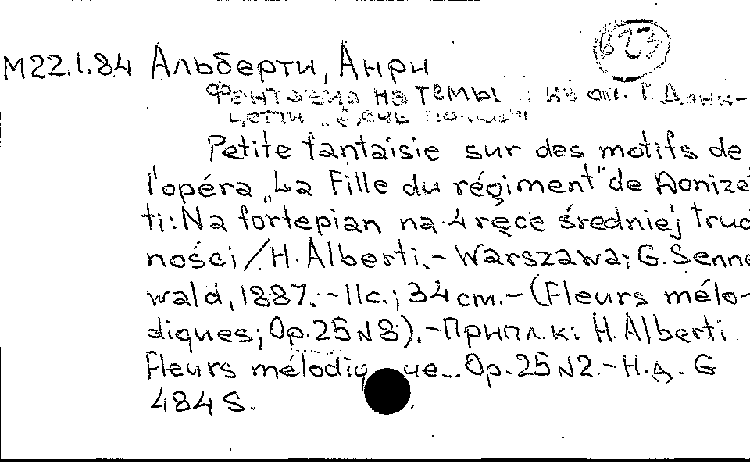 623
M22.1.84 Альберти, Анри
Фантазия на темы из оп. Г. Дони-
цетти
Petite fantaisie sur des motifs de
l'opéra „La Fille du régiment" de Donize
ti: Na fortepian na 4 ręce średniej trud
ności / H. Alberti. - Warszawa; G. Senne
wald, 1887. - 11c.; 34 cm. - (Fleurs mélo-
diques; Op. 25 N 8). - Припл. к: H. Alberti.
Fleurs mélodique... Op. 25 N2. - Н.д. G
484 S.